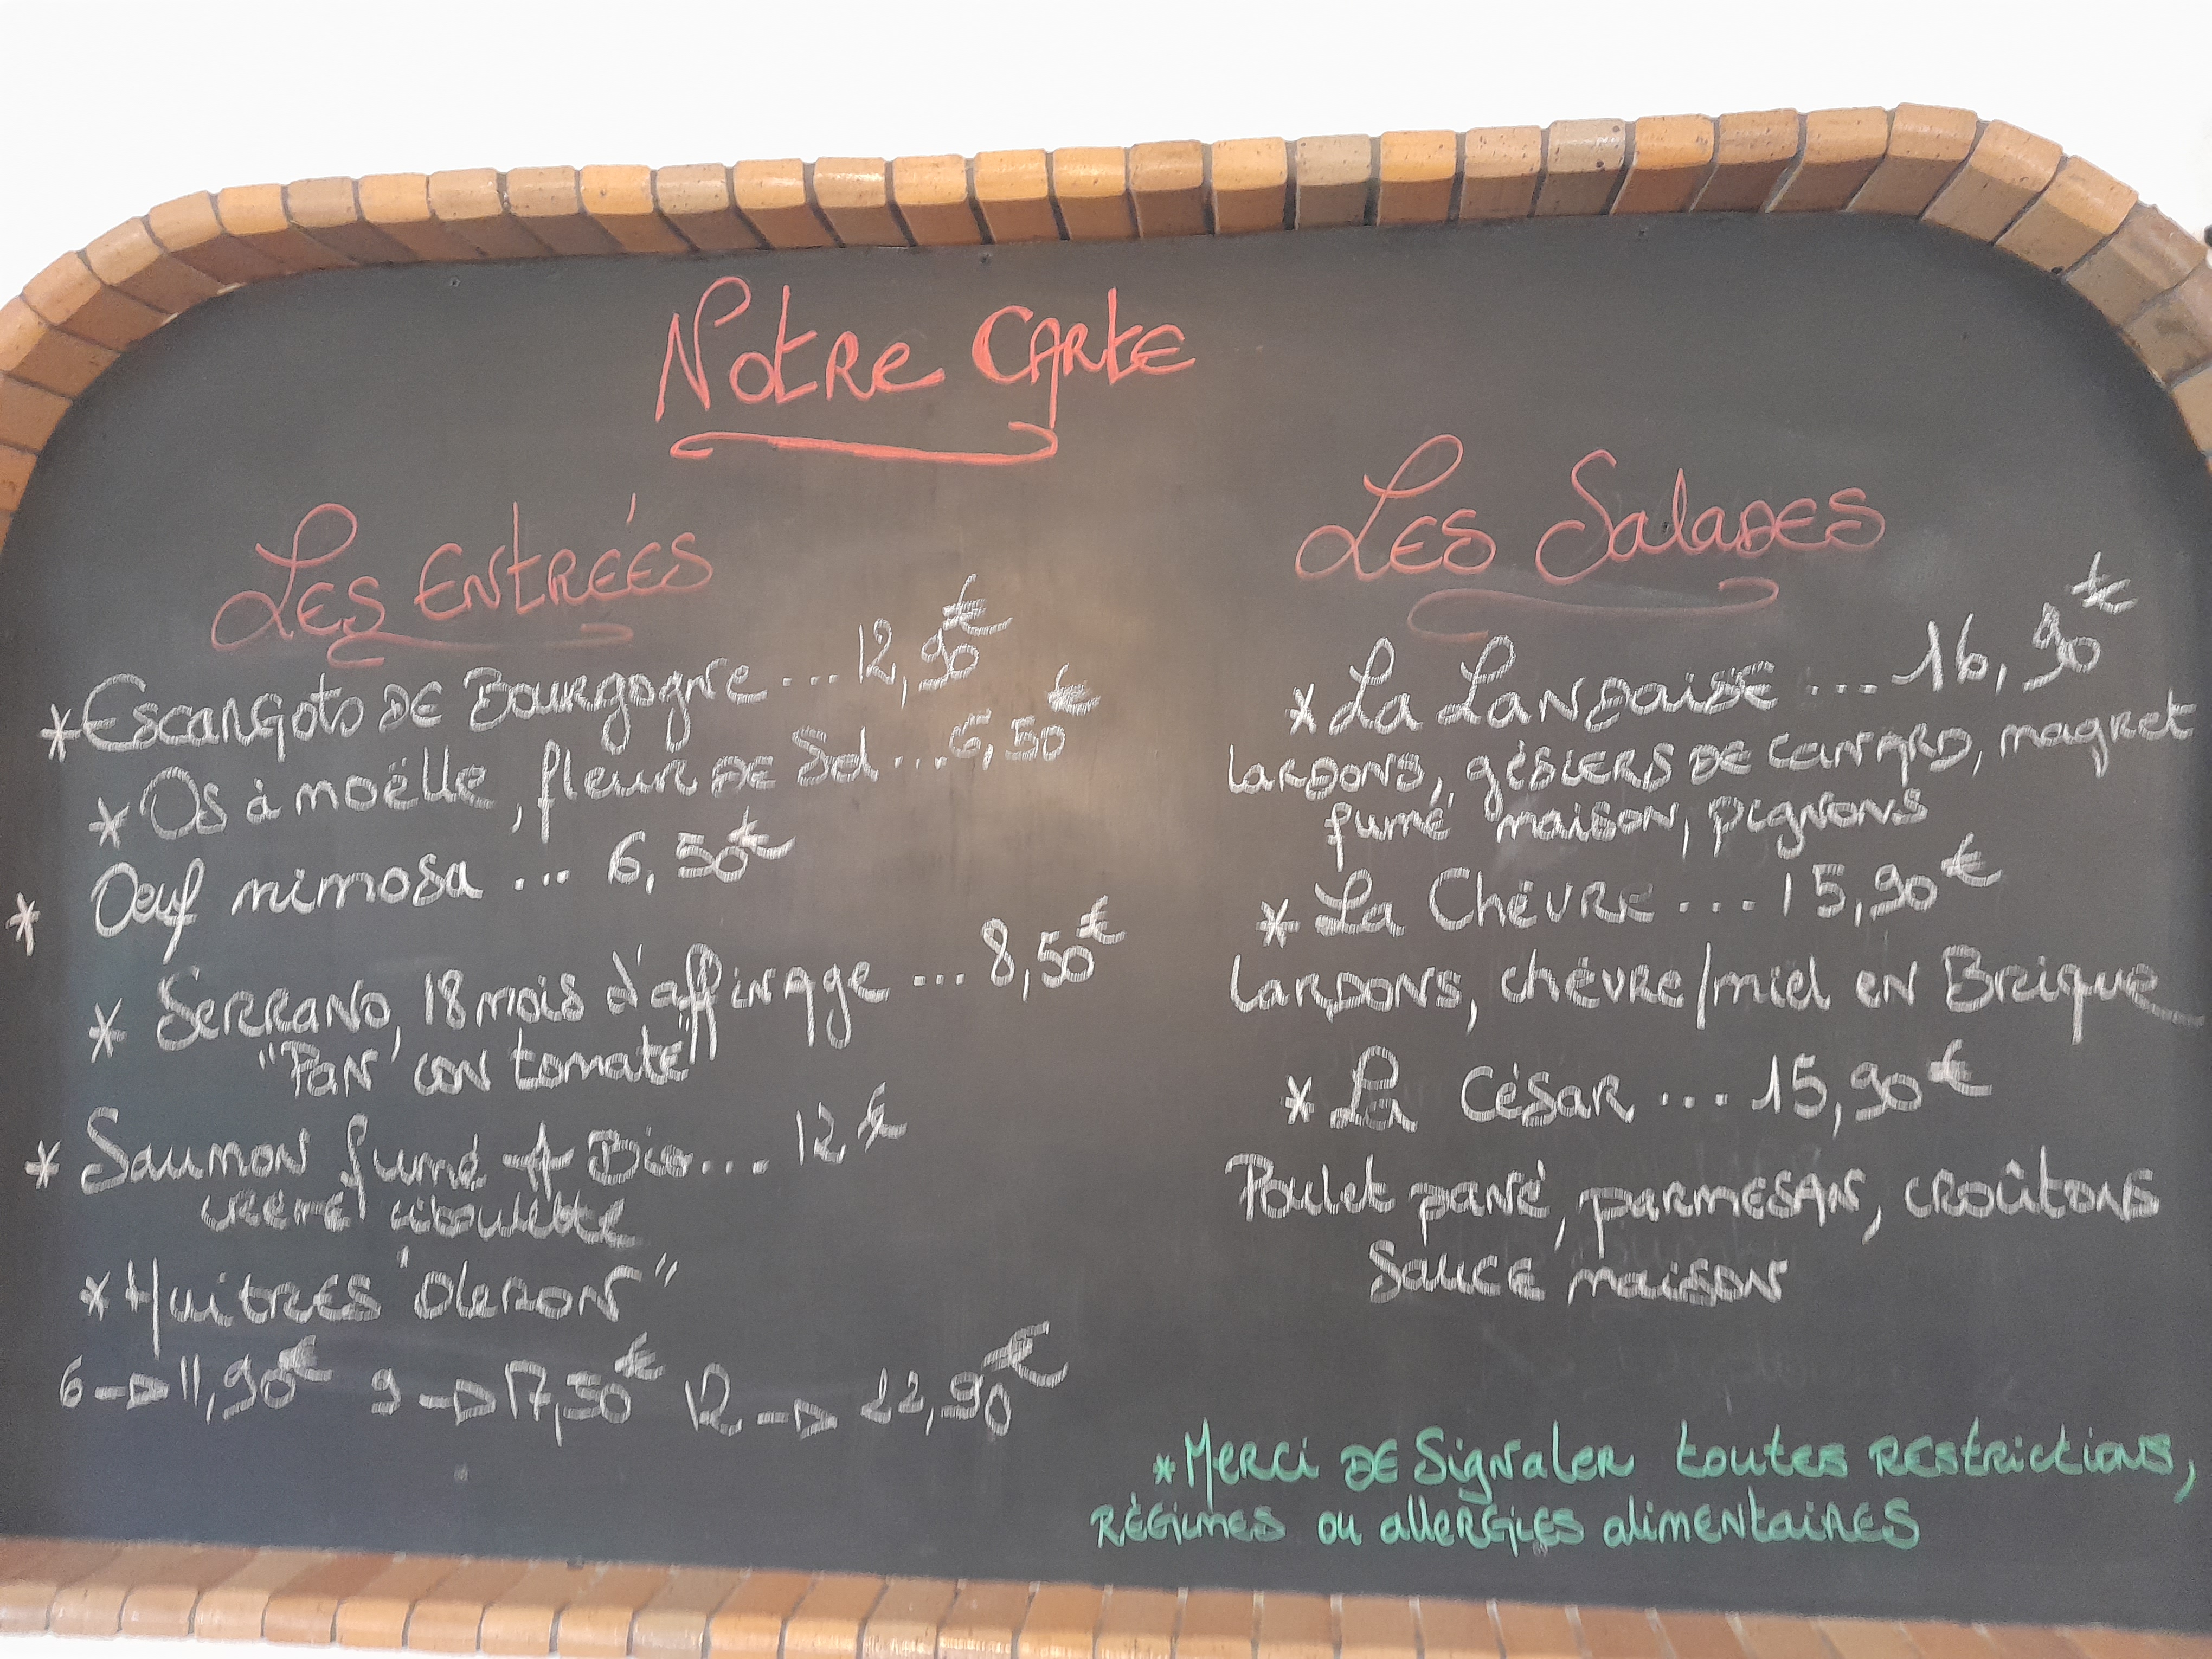 Notre Carte
Les Entrées
*Escargots de Bourgogne ... 12,90€
*Os à moëlle, fleur de Sel ... 6,50€
* Oeuf mimosa ... 6,50€
* Serrano, 18 mois d'affinage ... 8,50€
"Pan con tomate"
* Saumon fumé Bio ... 12€
crème ciboulette
*Huitres "Oleron"
6 → 11,90€ 9 → 17,50€ 12 → 22,90€
Les Salades
*La Landaise ... 16,90€
Lardons, gésiers de canard, magret
fumé "maison, pignons
*La Chèvre ... 15,90€
Lardons, chèvre/miel en Brique
*La César ... 15,90€
Poulet pané, parmesan, croûtons
Sauce maison
*Merci de Signaler toutes restrictions,
régimes ou allergies alimentaires